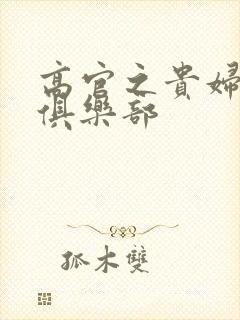 高官之貴婦
俱樂部
孤木雙